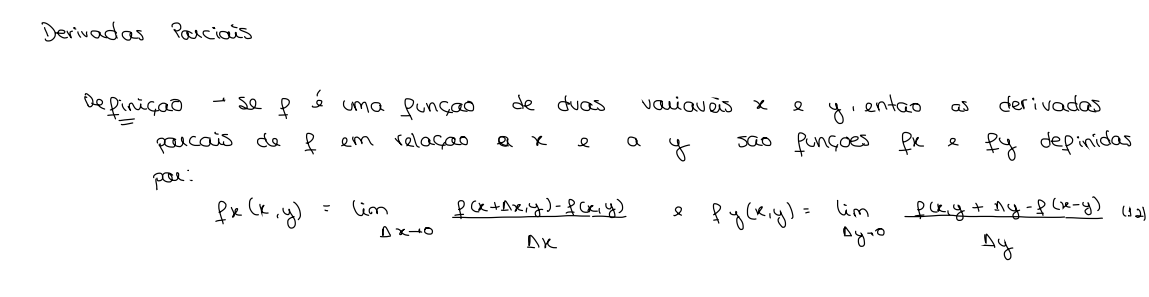 Derivadas Parciais
Definiçao → se f é uma funçao de duas variaveis x e y, entao as derivadas
parcais de f em relaçao a x e a y sao funçoes fx e fy definidas
por:
fx(x,y) = lim Δx→0 f(x+Δx,y)-f(x,y) / Δx e fy(x,y) = lim Δy→0 f(x,y + Δy - f(x-y) / Δy (12)